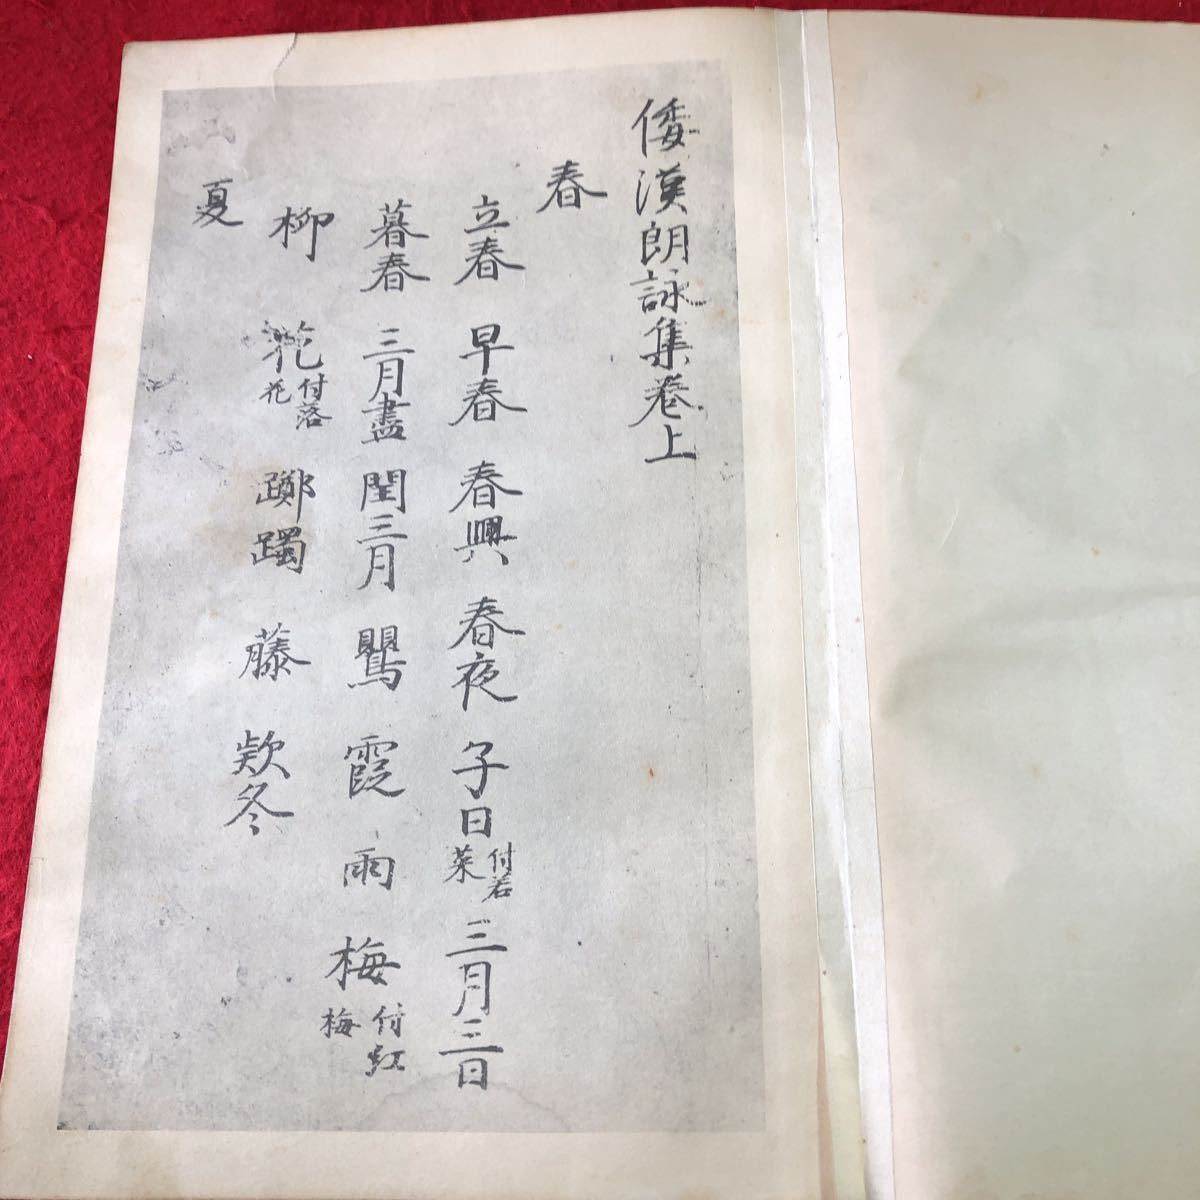 倭漢朗詠集巻上
春
立春 早春 春興 春夜 子日付若菜 三月三日
暮春 三月盡 閏三月 鸎 霞 雨 梅付紅梅
柳 花付落花 躑躅 藤 款冬
夏